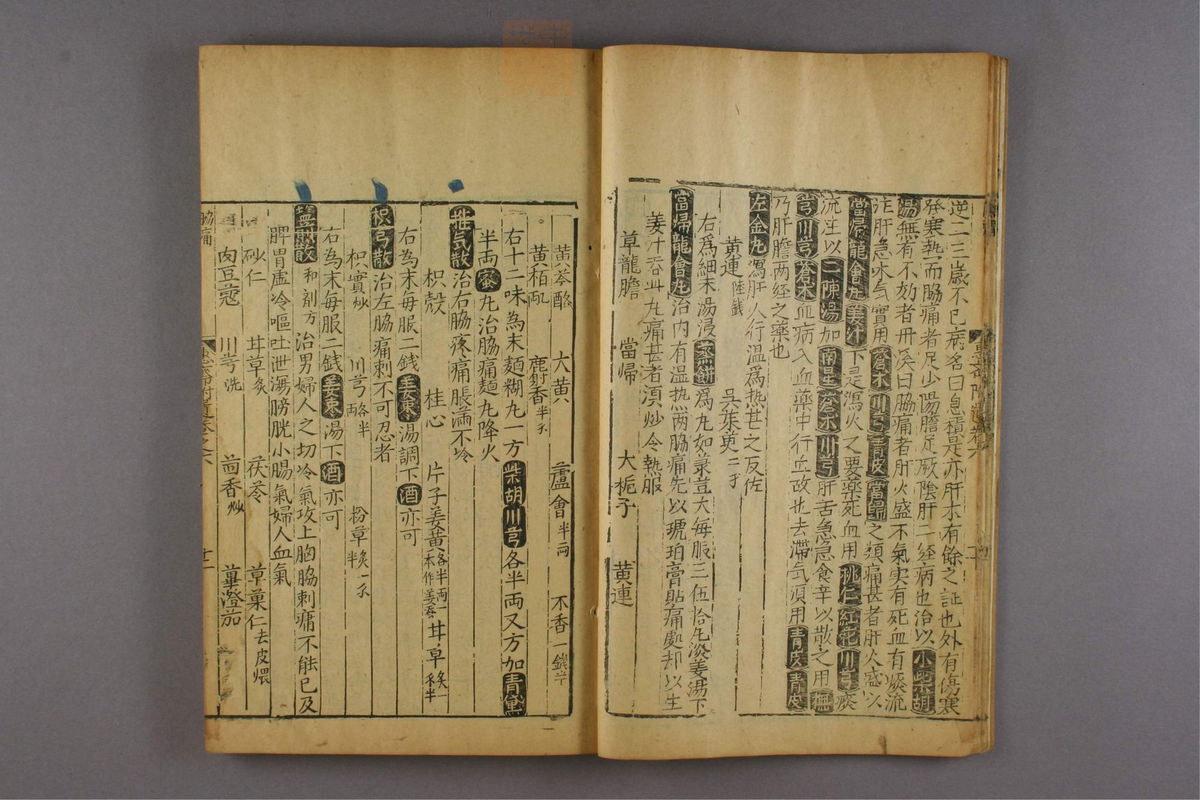 逆二三歲不已病名曰息積是亦肝木有餘之証也外有傷寒
發寒熱而脇痛者足少陽膽足厥陰肝二経病也治以小柴胡
湯無有不効者丹溪曰脇痛者肝火盛木氣実有死血有痰流
注肝急木气實用蒼朮川芎青皮當歸之類痛甚者肝火盛以
當歸龍會丸姜汁下是瀉火之要藥死血用桃仁紅花川芎痰
流注以二陳湯加南星蒼朮川芎肝苦急急食辛以散之用撫
芎川芎蒼朮血病入血藥中行血故也去滯气須用青皮青皮
乃肝膽两经之藥也
左金丸瀉肝火行温爲热甚之反佐
黄連 陸戔 吳茱萸二子
右爲細末湯浸蒸餅爲丸如菉豆大每服三伍拾丸淡姜湯下
當歸龍會丸治内有温热两脇痛先以琥珀膏貼痛處却以生
姜汁吞此丸痛甚者須炒令熱服
草龍膽 當歸 大梔子 黄連
黄芩酩 大黄 蘆會半両 木香一錢半
黄栢 麝香半子
右十二味為末麵糊丸一方柴胡川芎各半両又方加青黛
半両蜜丸治脇痛麺丸降火
推氣散治右脇疼痛脹满不坽
枳殼 桂心 片子姜黄各半両一本作姜蚕 甘草炙一子半
右為末每服二錢姜棗湯調下酒亦可
枳芎散治左脇痛刺不可忍者
枳實炒 川芎各半両 粉草炙一子半
右為末每服二錢姜棗湯下酒亦可
盐煎散和剤方治男婦人之切冷氣攻上胸脇刺痛不能已及
脾胃虛冷嘔吐泄瀉膀胱小腸氣婦人血氣
砂仁 甘草炙 茯苓 草菓仁去皮煨
肉豆蔻 川芎洗 茴香炒 蓽澄茄
脇痛